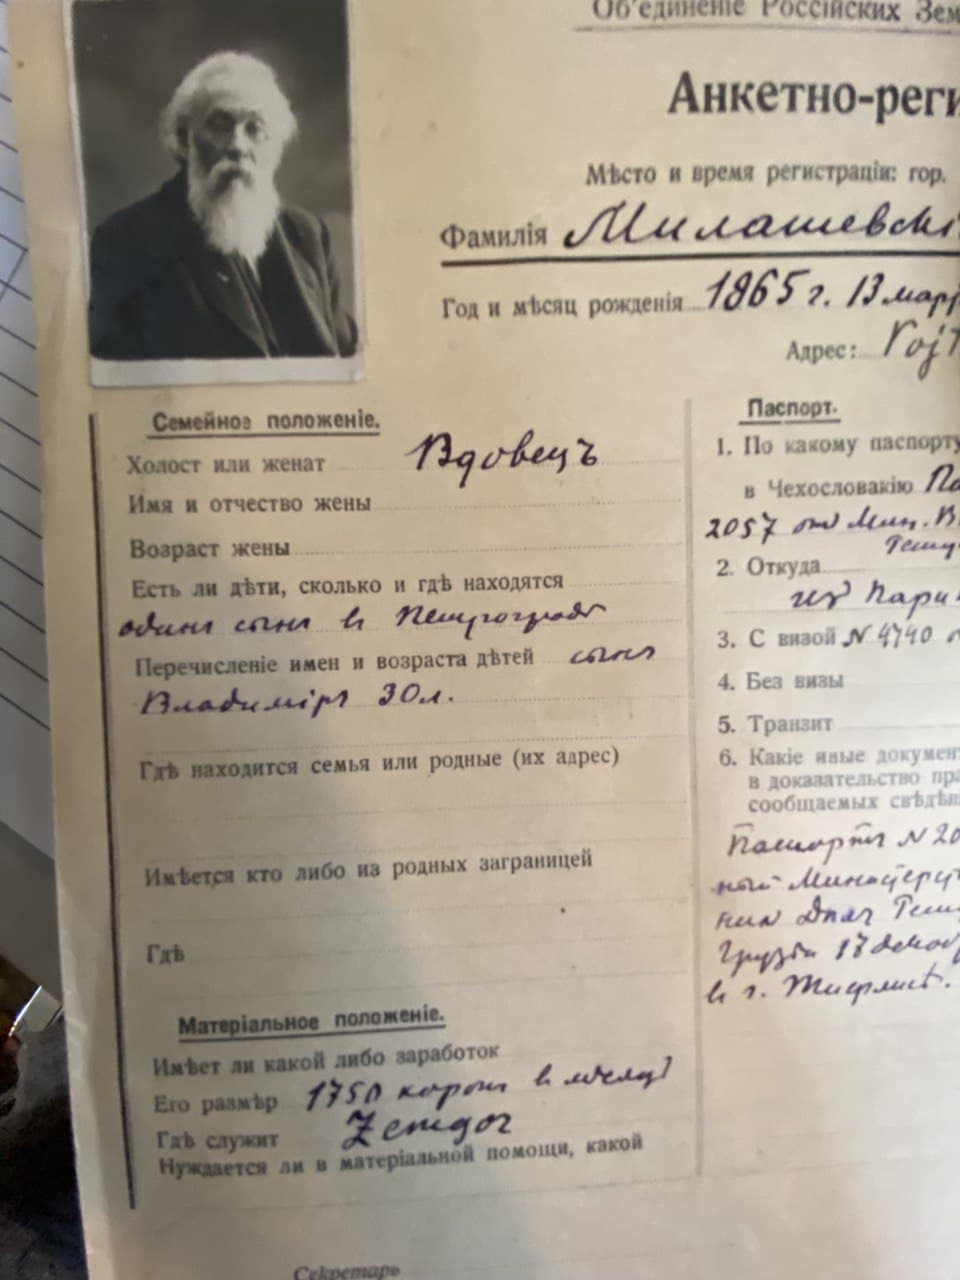 Об'единеніе Россійских Зем
Анкетно-реги
Мѣсто и время регистраціи: гор.
Фамилія Милашевскі
Год и мѣсяц рожденія 1865 г. 13 мар
Адрес: Voj
Семейное положеніе.
Холост или женат Вдовецъ
Имя и отчество жены
Возраст жены
Есть ли дѣти, сколько и гдѣ находятся
одинъ сынъ въ Петроградѣ
Перечисленіе имен и возраста дѣтей сынъ
Владиміръ 30 л.
Гдѣ находится семья или родные (их адрес)
Имѣется кто либо из родных заграницей
Гдѣ
Матеріальное положеніе.
Имѣет ли какой либо заработок
Его размѣр 1750 коронъ в мѣсяц
Гдѣ служит Земгор
Нуждается ли в матеріальной помощи, какой
Секретарь
Паспорт.
1. По какому паспорту
в Чехословакію Па
2057 от Мин. В
2. Откуда
из Пари
3. С визой N 4740
4. Без визы
5. Транзит
6. Какіе иные докумен
в доказательство пра
сообщаемых свѣдѣн
Паспортъ N 20
ный Министерст
Дѣл
Грузіи 17 декаб
в г. Тифлисѣ.